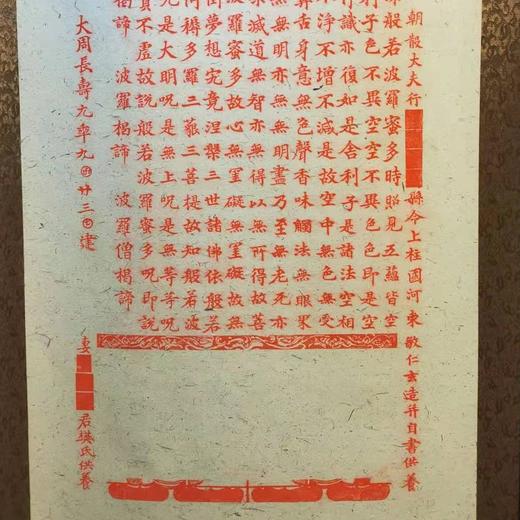 朝散大夫行縣令上柱國河東敬仁玄造并自書供養
般若波羅蜜多時照見五蘊皆空
利子色不異空空不異色色即是空
行識亦復如是舍利子是諸法空相
不淨不增不減是故空中無色無受
鼻舌身意無色聲香味觸法無眼界
無無明亦無無明盡乃至無老死亦
集滅道無智亦無得以無所得故菩
波羅蜜多故心無罣礙無罣礙故無
倒夢想究竟涅槃三世諸佛依般若
阿耨多羅三藐三菩提故知般若波
咒是大明咒是無上咒是無等等咒
實不虛故說般若波羅蜜多咒即說
揭諦 波羅揭諦 波羅僧揭諦
大周長壽九年九囝廿三𡆠建
妻君樊氏供養